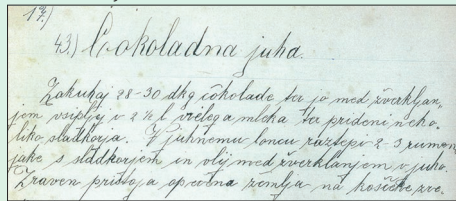 43.) Čokoladna juha.
Zakuhaj 28-30 dkg čokolade ter jo med žverkljan,
jem vsiplji v 2 ½ l vrelega mleka ter prideni neko-
liko sladkorja. V juhnemu loncu raztepi 2-3 rumen,
jake s sladkorjem in vlij med žverklanjem v juho.
Zraven pristoja opečena žemlja na koščeke zre,